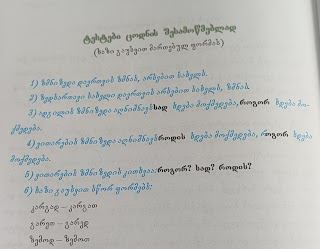 ტესტები ცოდნის შესამოწმებლად
(ხაზი გაუსვით მართებულ ფორმას)
1) ზმნიზედა დაერთვის ზმნას, არსებით სახელს.
2) ზედსართავი სახელი დაერთვის არსებით სახელს, ზმნას.
3) ადგილის ზმნიზედა აღნიშნავს სად ხდება მოქმედება, როგორ ხდება მო-
ქმედება.
4) ვითარების ზმნიზედა აღნიშნავს როდის ხდება მოქმედება, როგორ ხდება
მოქმედება.
5) ვითარების ზმნიზედის კითხვაა: როგორ? სად? როდის?
6) ხაზი გაუსვით სწორ ფორმებს:
კარგად – კარგათ
გარეთ – გარედ
ზემოდ – ზემოთ